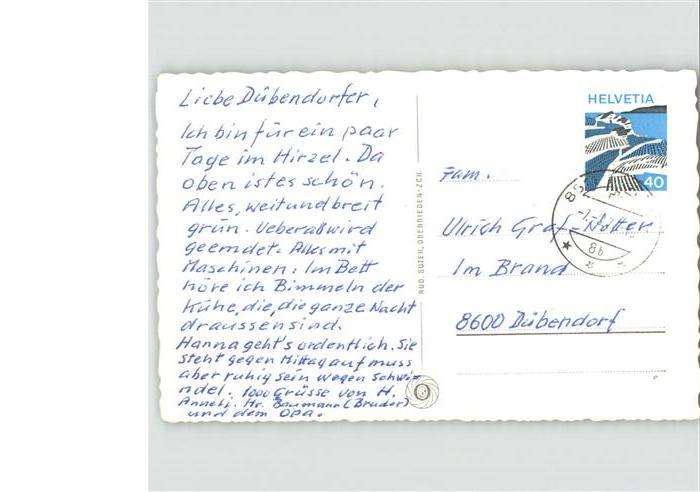 Liebe Dübendorfer,
Ich bin für ein paar
Tage im Hirzel. Da
oben ist es schön.
Alles, weit und breit
grün. Ueberall wird
geerndet. Alles mit
Maschinen. Im Bett
höre ich Bimmeln der
Kühe, die, die ganze Nacht
draussen sind.
Hanna geht's ordentlich. Sie
steht gegen Mittag auf muss
aber ruhig sein wegen Schwi
ndel. 1000 Grüsse von H.
Anneli. Hr. Baumann (Bruder)
und dem Opa.
RUD. SUTER, OBERRIEDEN-ZCH.
HELVETIA
40
86
Fam.
Ulrich Graf-Nötter
Im Brand
8600 Dübendorf